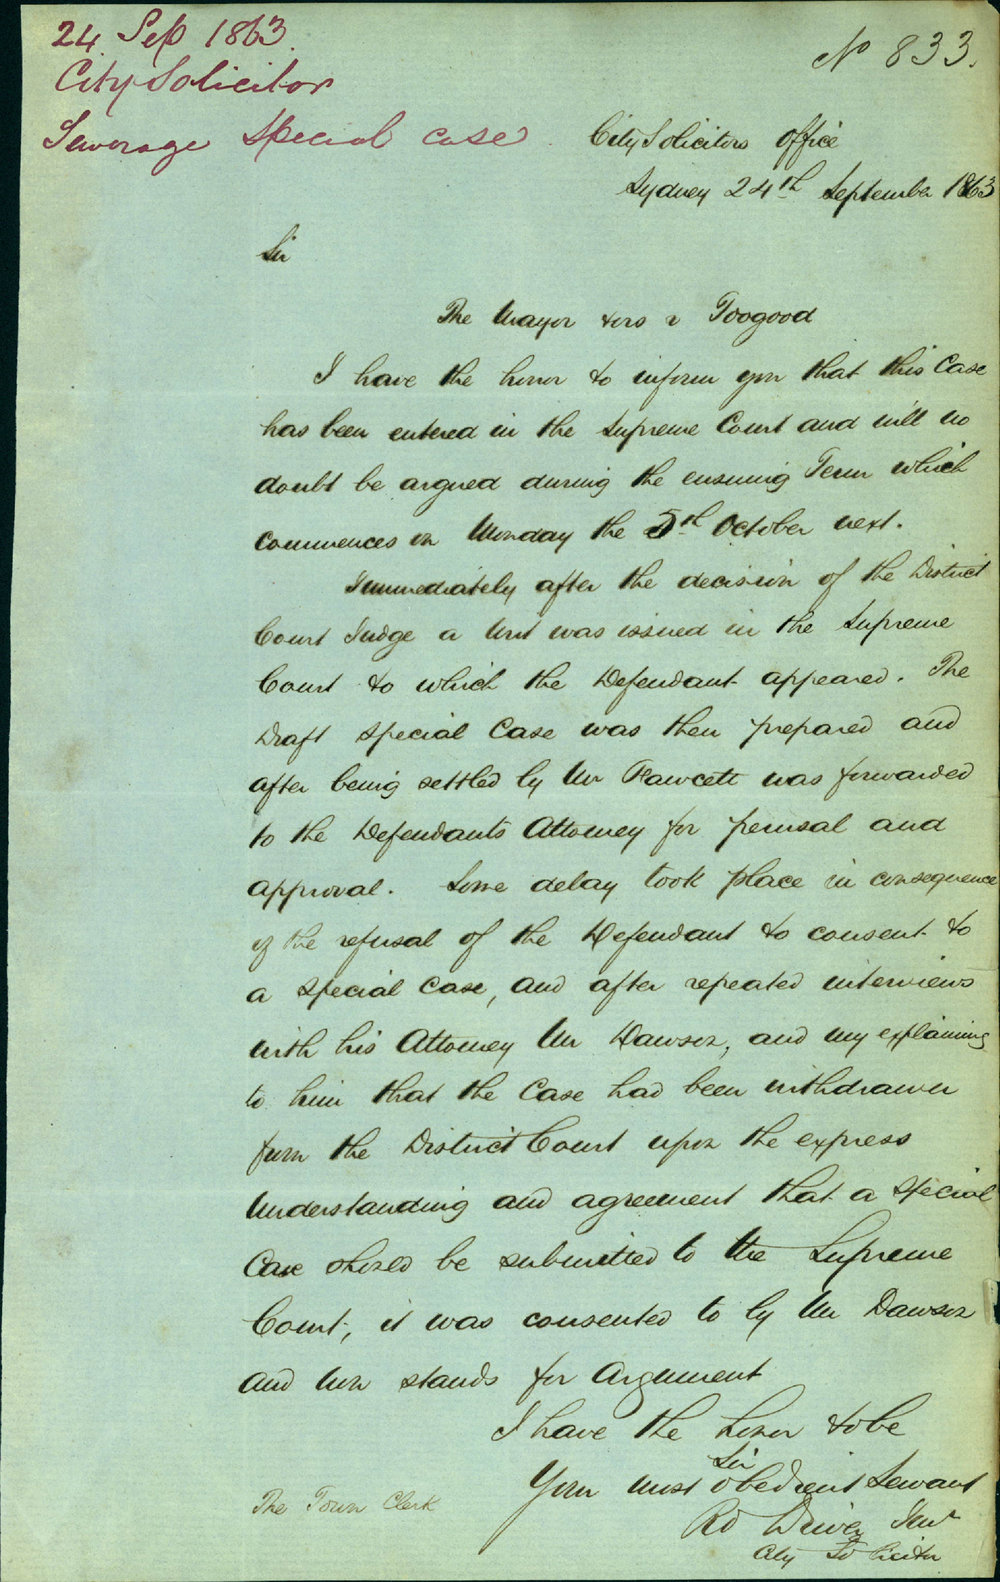 24 Sep 1863.
City Solicitor
Sewerage Special case
No 833.
City Solicitors Office
Sydney 24th September 1863
Sir
The Mayor &ors v Toogood
I have the honor to inform you that this Case
has been entered in the Supreme Court and will no
doubt be argued during the ensuing Term which
commences on Monday the 5th October next.
Immediately after the decision of the District
Court Judge a Writ was issued in the Supreme
Court to which the Defendant appeared. The
Draft Special Case was then prepared and
after being settled by Mr Fawcett was forwarded
to the Defendants Attorney for perusal and
approval. Some delay took place in consequence
of the refusal of the Defendant to consent to
a Special Case, and after repeated interviews
with his Attorney Mr Dawson, and my explaining
to him that the Case had been withdrawn
from the District Court upon the express
understanding and agreement that a Special
Case should be submitted to the Supreme
Court, it was consented to by Mr Dawson
and now stands for Argument
I have the honor to be
Sir
Your most obedient Servant
Rd Driver Junr
City Solicitor
The Town Clerk